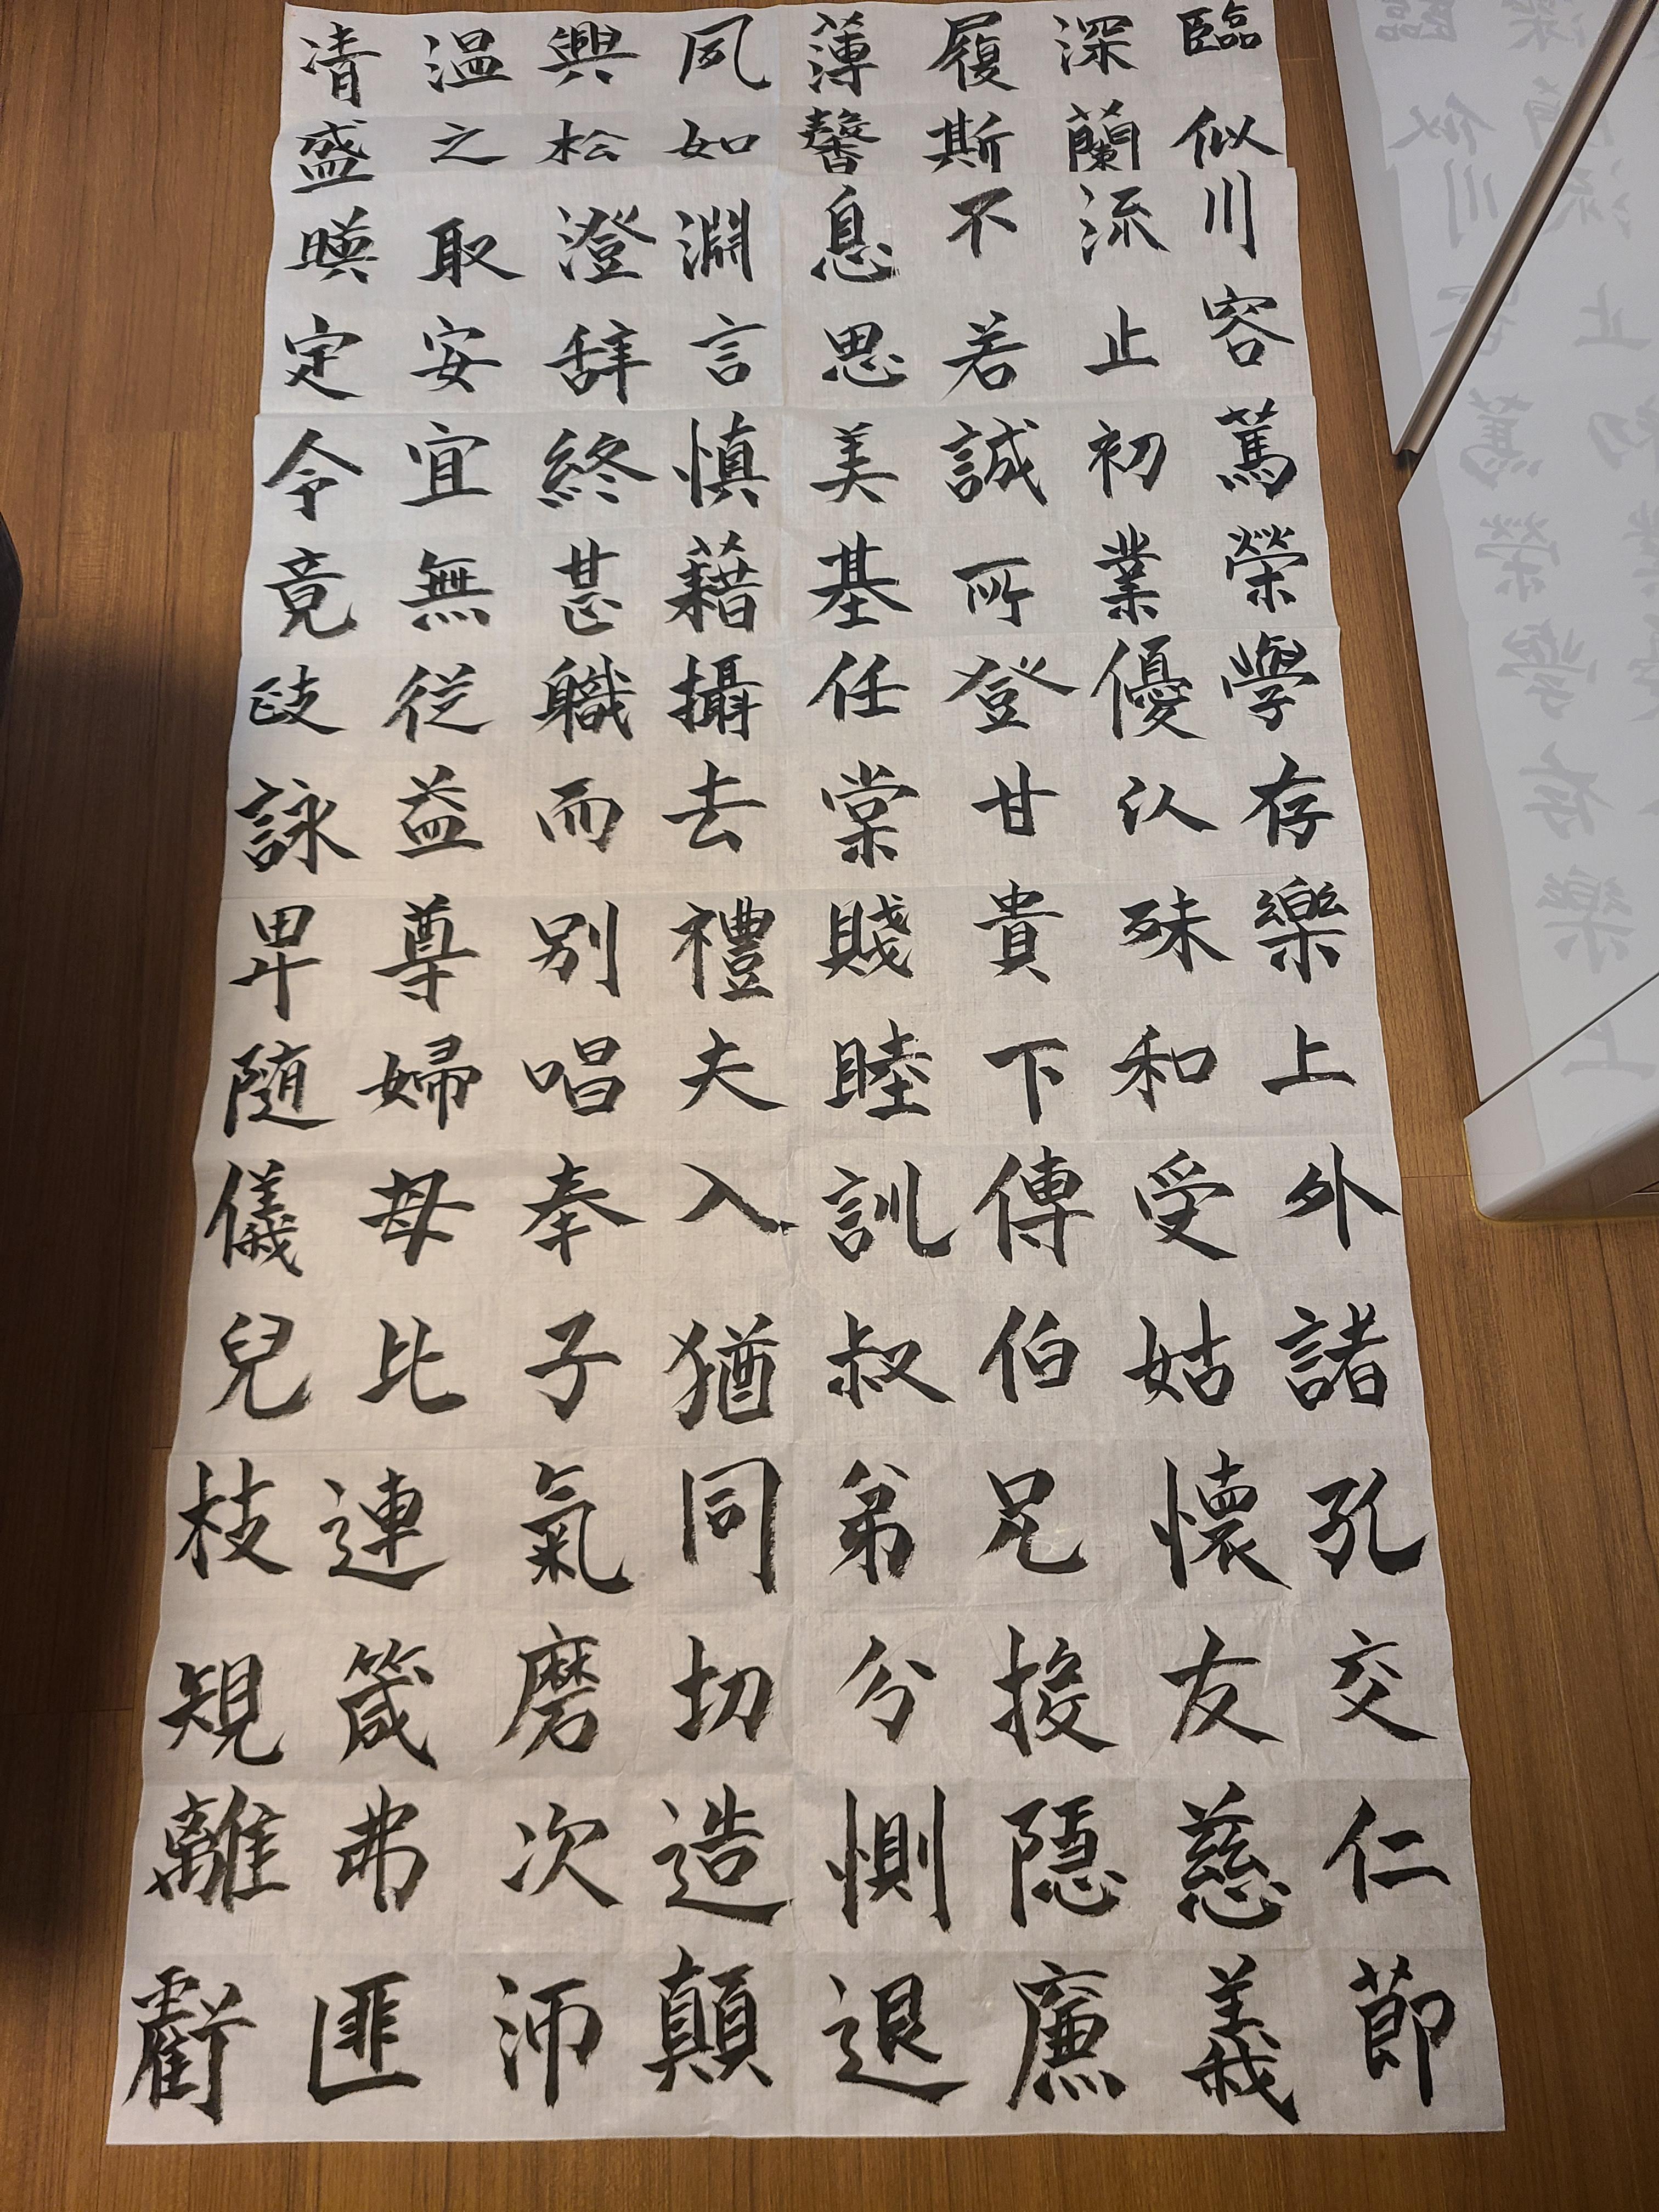 臨深履薄夙興温凊
似蘭斯馨如松之盛
川流不息淵澄取暎
容止若思言辞安定
篤初誠美慎終宜令
榮業所基藉甚無竟
學優登任攝職従政
存以甘棠去而益詠
樂殊貴賤禮別尊卑
上和下睦夫唱婦随
外受傅訓入奉母儀
諸姑伯叔猶子比兒
孔懐兄弟同氣連枝
交友投分切磨箴規
仁慈隠惻造次弗離
節義廉退顛沛匪虧